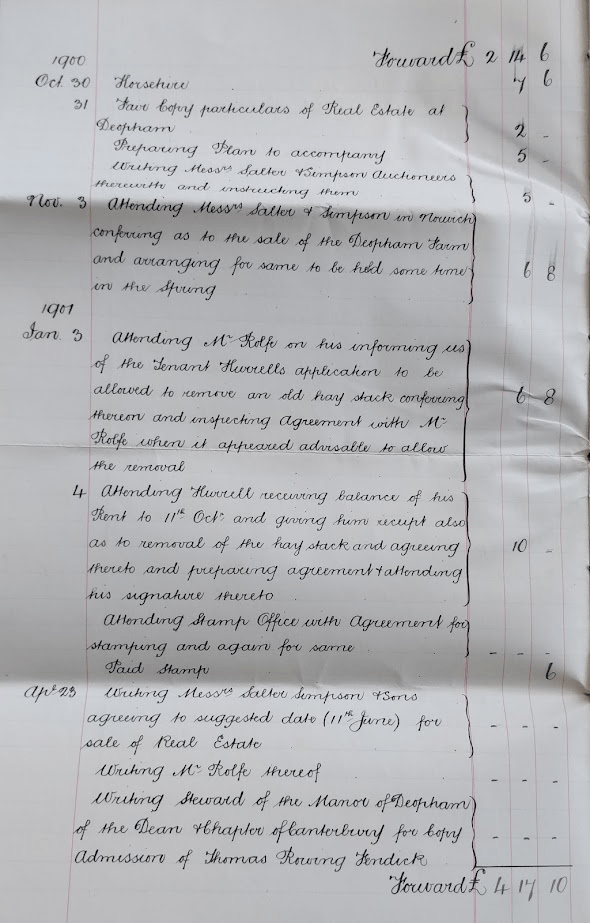 1900 Forward £ 2 14 6
Oct. 30 Horsehire 7 6
31 Fair Copy particulars of Real Estate at
Deopham 2 -
Preparing Plan to accompany 5 -
Writing Messrs Salter & Simpson Auctioneers
therewith and instructing them 5 -
Nov. 3 Attending Messrs Salter & Simpson in Norwich
conferring as to the sale of the Deopham Farm
and arranging for same to be held some time 6 8
in the Spring
1901
Jan. 3 Attending Mr Rolfe on his informing us
of the Tenant Hurrells application to be
allowed to remove an old hay stack conferring 6 - 8
thereon and inspecting Agreement with Mr
Rolfe when it appeared advisable to allow
the removal
4 Attending Hurrell receiving balance of his
Rent to 11th Octr and giving him receipt also
as to removal of the hay stack and agreeing 10 -
thereto and preparing agreement & attending
his signature thereto
Attending Stamp Office with Agreement for
stamping and again for same - - -
Paid Stamp 6
Apl 23 Writing Messrs Salter Simpson & Sons
agreeing to suggested date (11th June) for - - -
sale of Real Estate
Writing Mr Rolfe thereof - - -
Writing Steward of the Manor of Deopham
of the Dean & Chapter of Canterbury for Copy - - -
Admission of Thomas Rowing Fendick
Forward £ 4 17 10